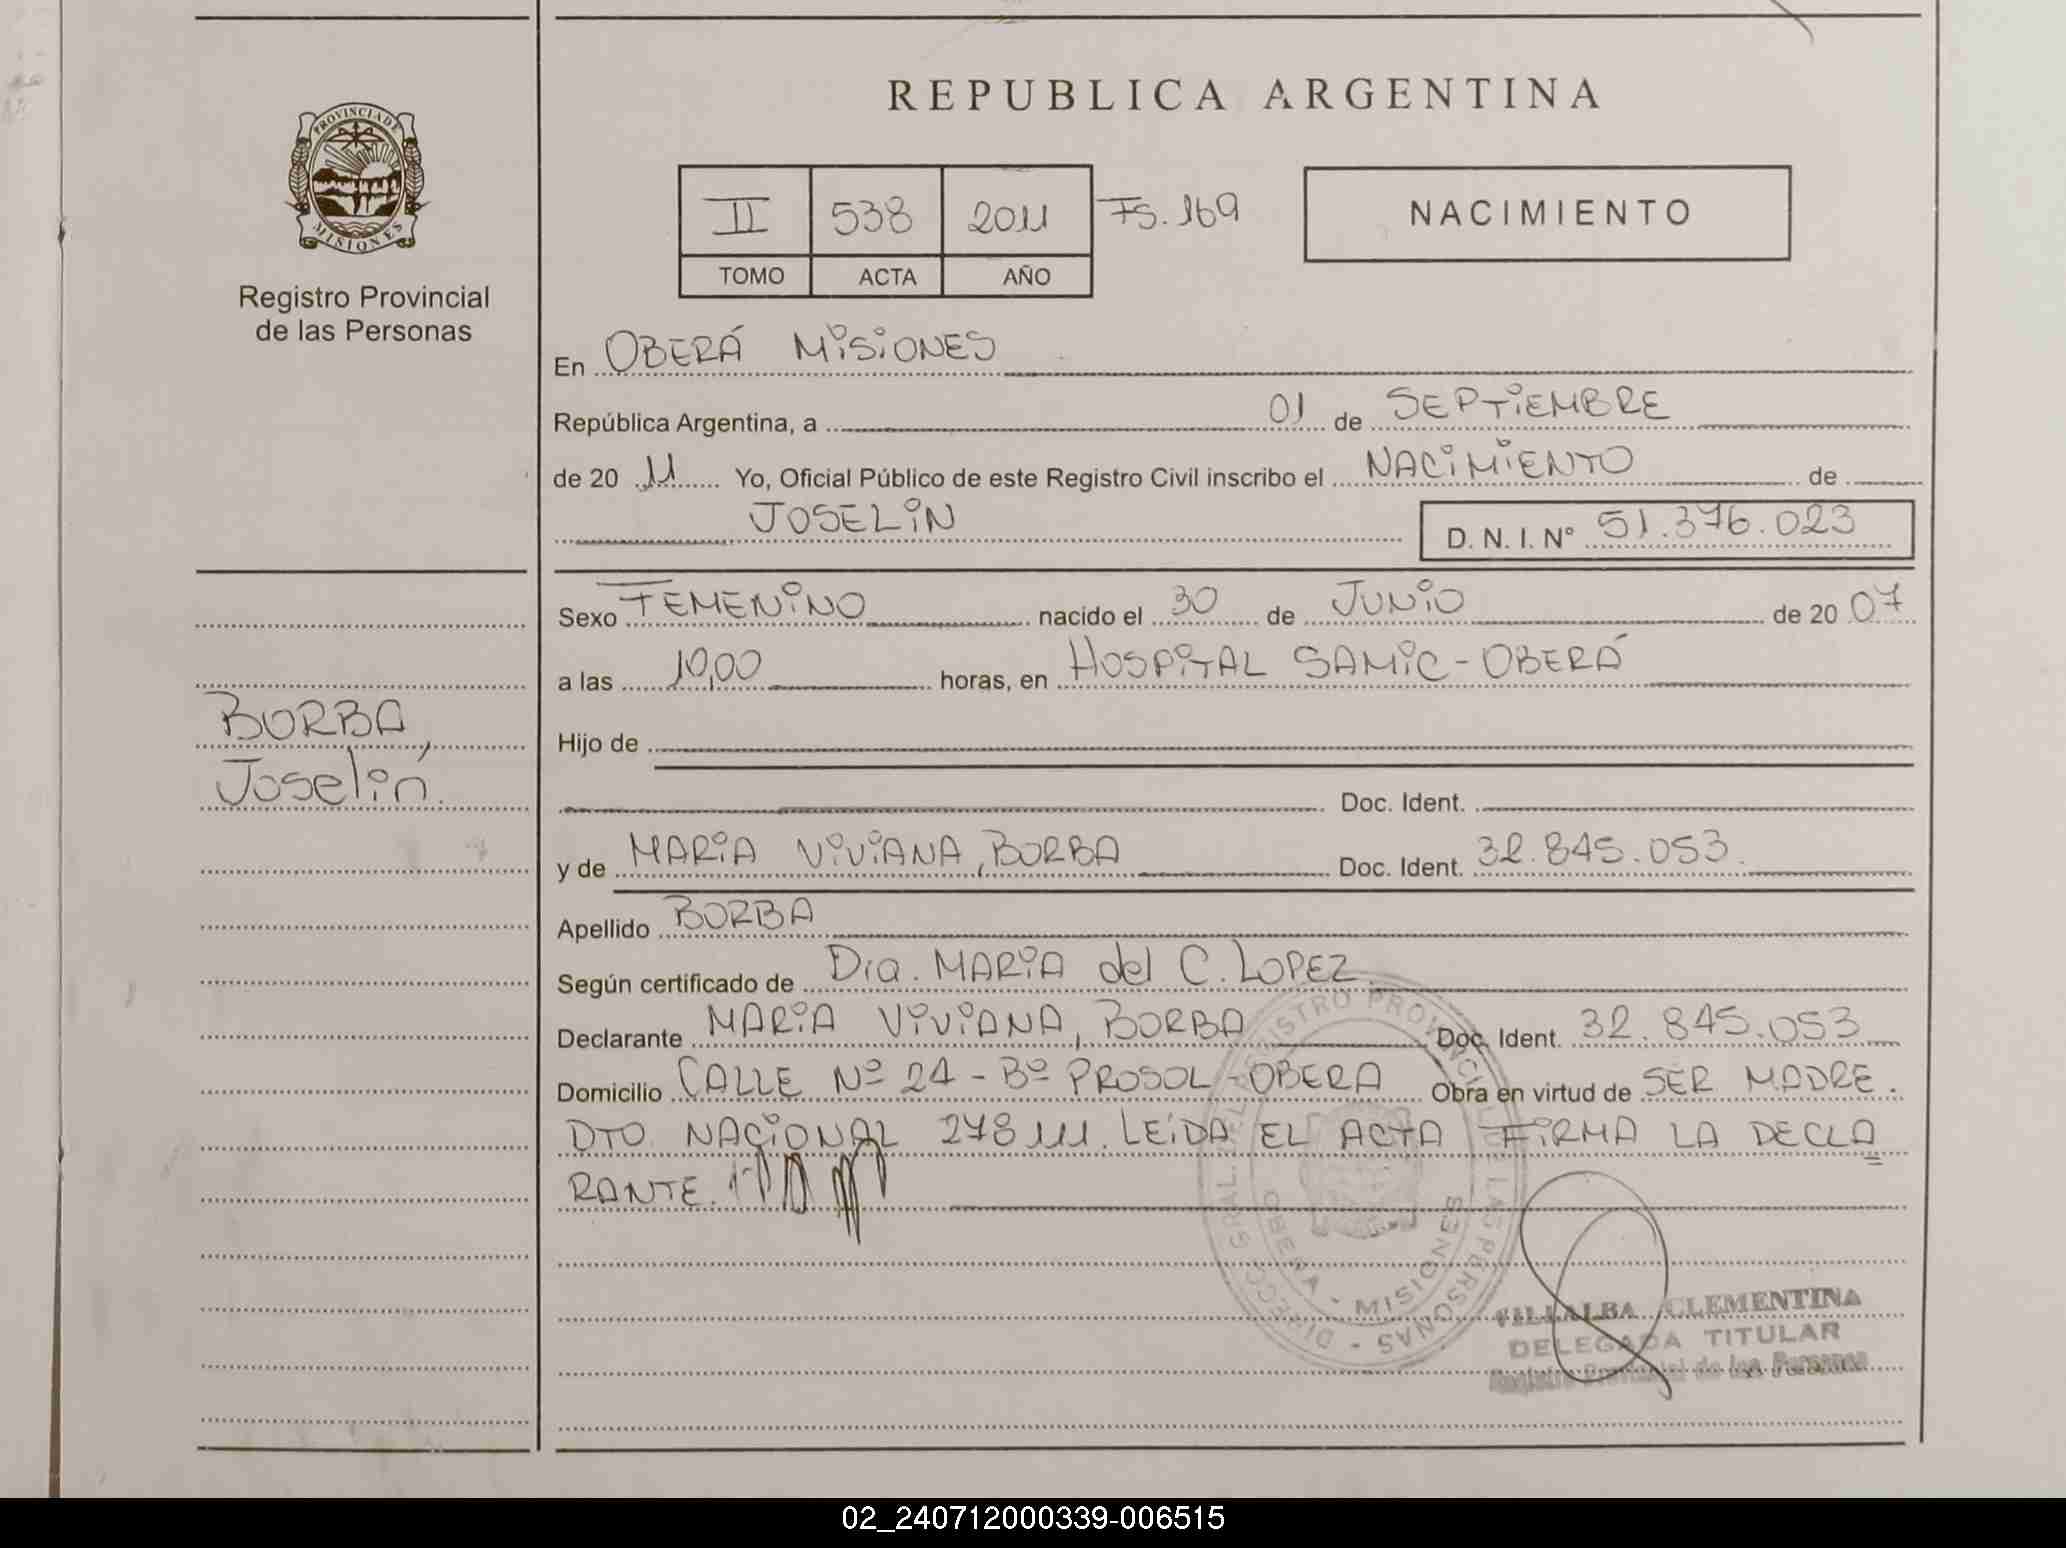 REPUBLICA ARGENTINA
PROVINCIA DE MISIONES
Registro Provincial
de las Personas
II 538 2011 Fs. 169
TOMO ACTA AÑO
NACIMIENTO
En OBERÁ MISIONES
República Argentina, a 01 de SEPTIEMBRE
de 20 11 Yo, Oficial Público de este Registro Civil inscribo el NACIMIENTO de
JOSELIN D. N. I. Nº 51.376.023
Sexo FEMENINO nacido el 30 de JUNIO de 20 07
a las 10,00 horas, en HOSPITAL SAMIC - OBERÁ
BORBA,
Joselin.
Hijo de
Doc. Ident.
y de MARIA VIVIANA, BORBA Doc. Ident. 32.845.053.
Apellido BORBA
Según certificado de Dra. MARIA del C. LOPEZ
Declarante MARIA VIVIANA, BORBA Doc. Ident. 32.845.053
Domicilio CALLE Nº 24 - Bº PROSOL - OBERA Obra en virtud de SER MADRE.
DTO NACIONAL 278/11. LEIDA EL ACTA FIRMA LA DECLA
RANTE.
DIRECC. GRAL. DEL REGISTRO PROVINCIAL DE LAS PERSONAS
OBERA - MISIONES
VILLALBA CLEMENTINA
DELEGADA TITULAR
Registro Provincial de las Personas
02_240712000339-006515